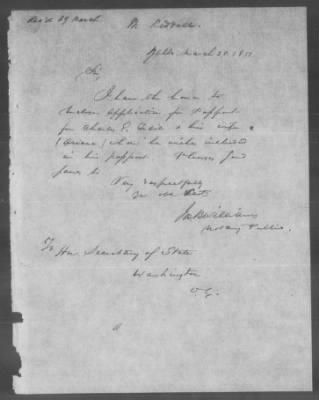 Rec'd 29 March
March 28. 18
Sir
I have the honor to
enclose application for Passport
for Charles E. & his wife
( ) whom he wishes included
in his passport Please send
same to
Very respectfully
Jas B Williams
Notary Public
To Hon. Secretary of State
Washington
D. C.